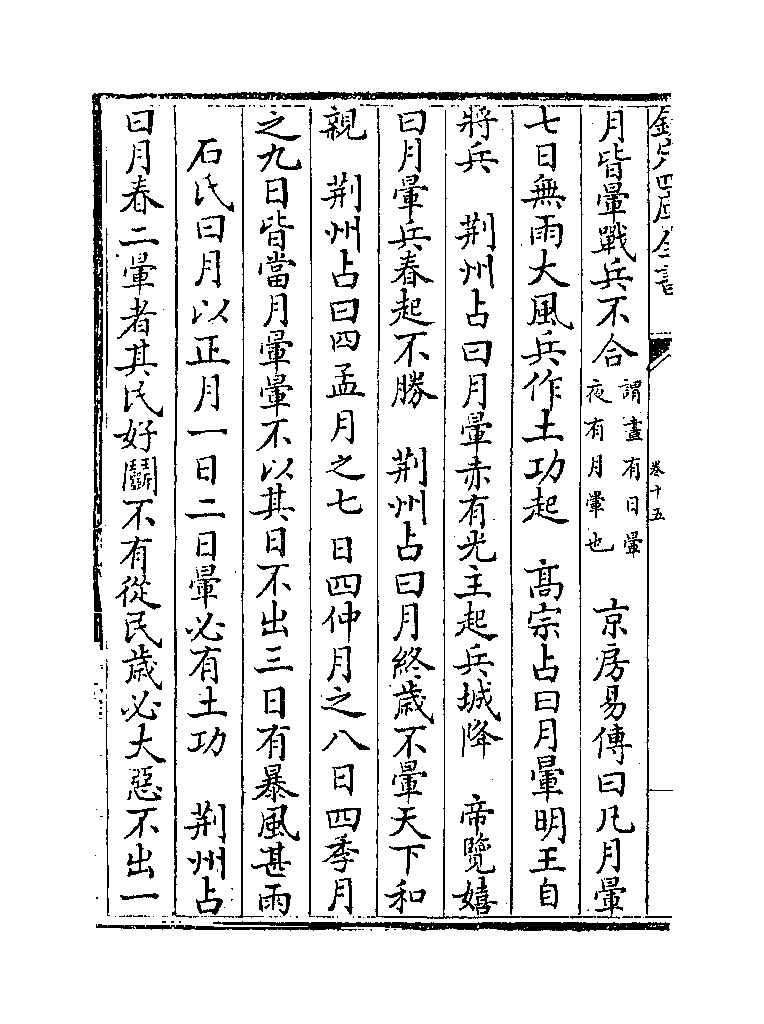 欽定四庫全書
卷十五
月皆暈戰兵不合謂晝有日暈夜有月暈也　京房易傳曰凡月暈
七日無雨大風兵作土功起　髙宗占曰月暈明王自
將兵　荆州占曰月暈赤有光主起兵城降　帝覽嬉
曰月暈兵春起不勝　荆州占曰月終歲不暈天下和
親　荆州占曰四孟月之七日四仲月之八日四季月
之九日皆當月暈暈不以其日不出三日有暴風甚雨
石氏曰月以正月一日二日暈必有土功　荆州占
曰月春二暈者其民好鬭不有從民歲必大惡不出一